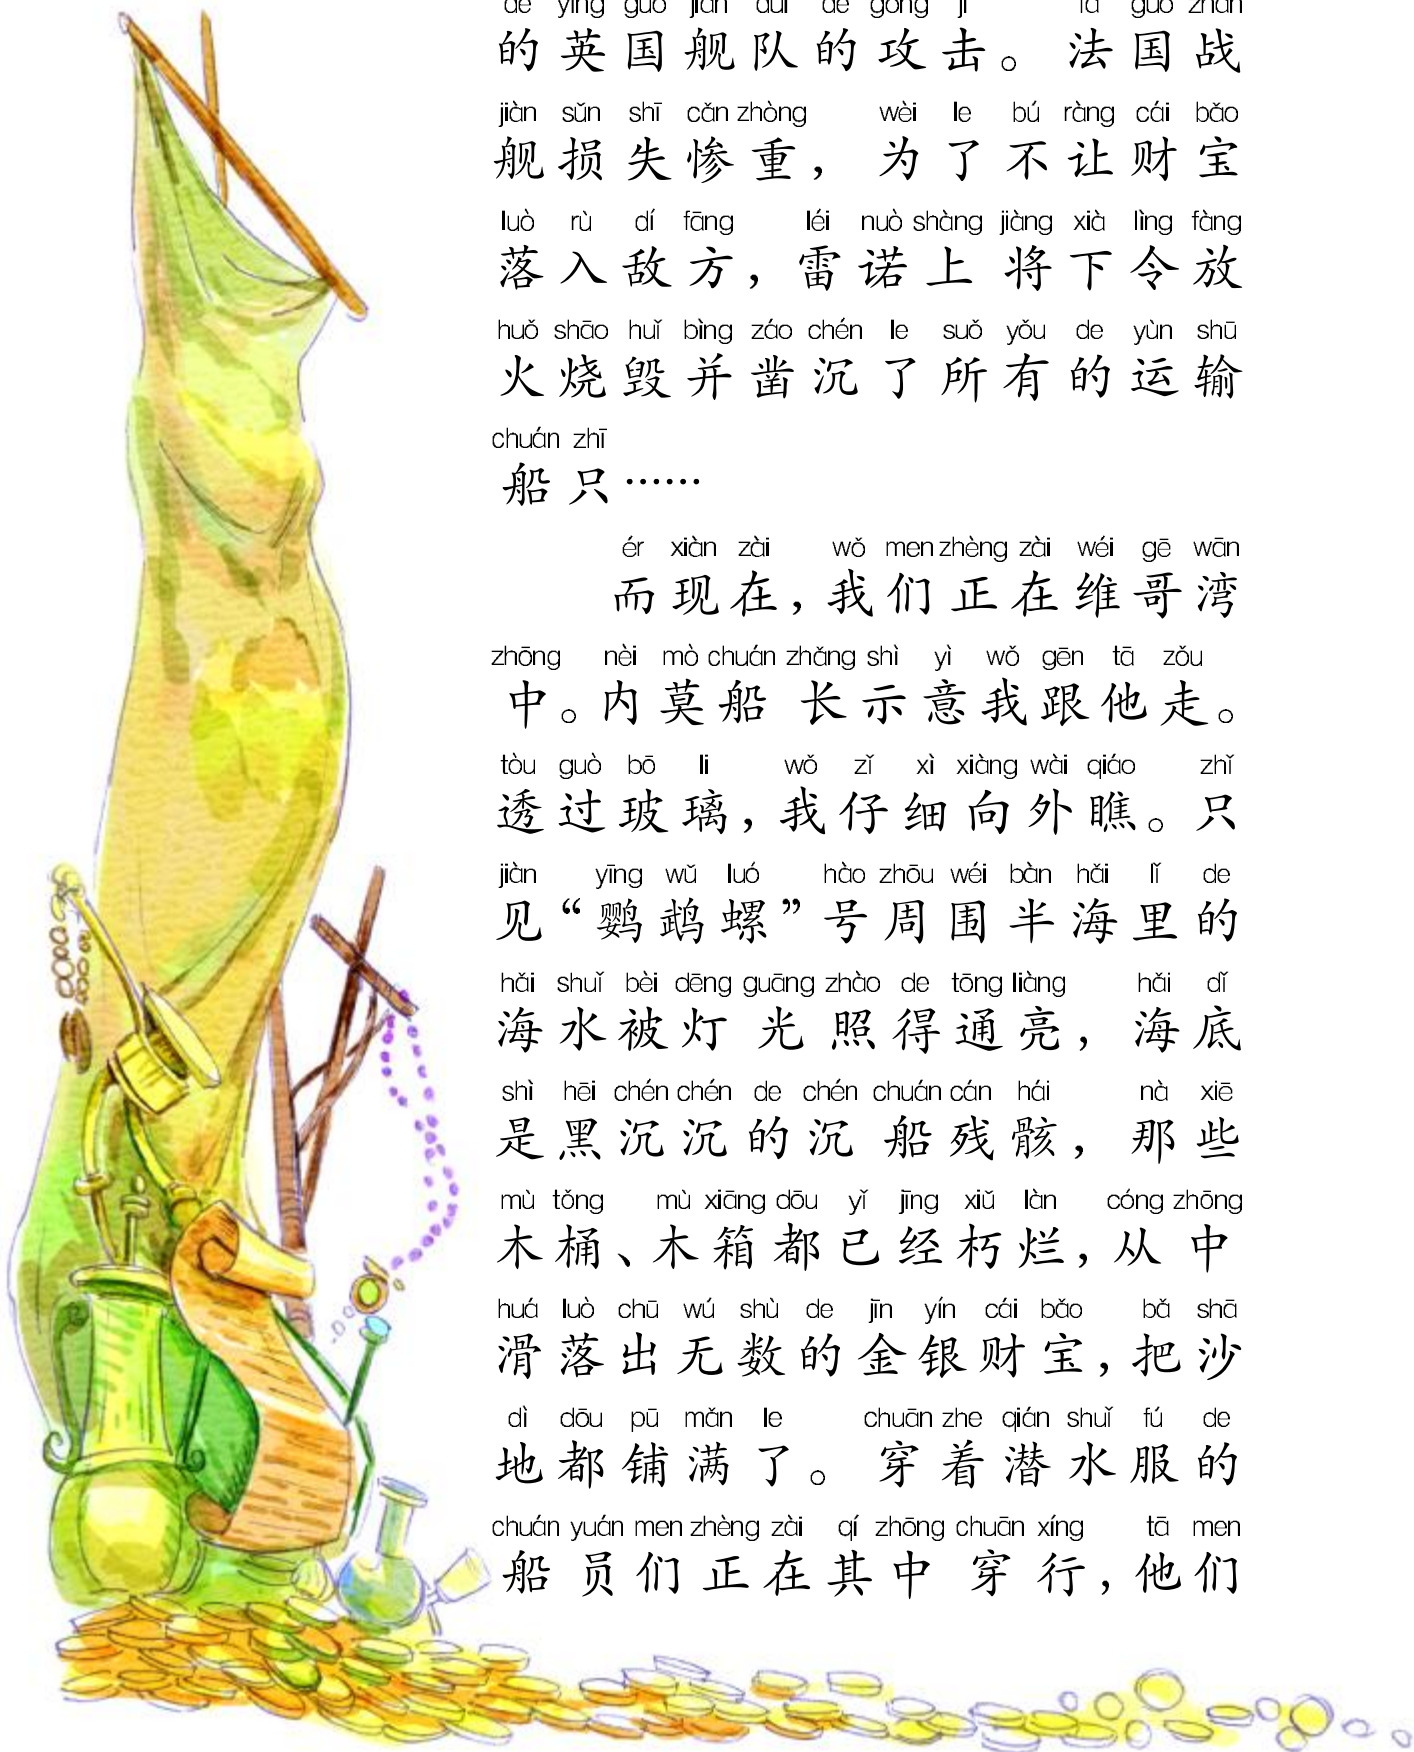 de yīng guó jiàn duì de gōng jī fǎ guó zhàn
的英国舰队的攻击。法国战
jiàn sǔn shī cǎn zhòng wèi le bú ràng cái bǎo
舰损失惨重，为了不让财宝
luò rù dí fāng léi nuò shàng jiàng xià lìng fàng
落入敌方，雷诺上将下令放
huǒ shāo huǐ bìng záo chén le suǒ yǒu de yùn shū
火烧毁并凿沉了所有的运输
chuán zhī
船只……
ér xiàn zài wǒ men zhèng zài wéi gē wān
而现在，我们正在维哥湾
zhōng nèi mò chuán zhǎng shì yì wǒ gēn tā zǒu
中。内莫船长示意我跟他走。
tòu guò bō li wǒ zǐ xì xiàng wài qiáo zhǐ
透过玻璃，我仔细向外瞧。只
jiàn yīng wǔ luó hào zhōu wéi bàn hǎi lǐ de
见“鹦鹉螺”号周围半海里的
hǎi shuǐ bèi dēng guāng zhào de tōng liàng hǎi dǐ
海水被灯光照得通亮，海底
shì hēi chén chén de chén chuán cán hái nà xiē
是黑沉沉的沉船残骸，那些
mù tǒng mù xiāng dōu yǐ jīng xiǔ làn cóng zhōng
木桶、木箱都已经朽烂，从中
huá luò chū wú shù de jīn yín cái bǎo bǎ shā
滑落出无数的金银财宝，把沙
dì dōu pū mǎn le chuān zhe qián shuǐ fú de
地都铺满了。穿着潜水服的
chuán yuán men zhèng zài qí zhōng chuān xíng tā men
船员们正在其中穿行，他们